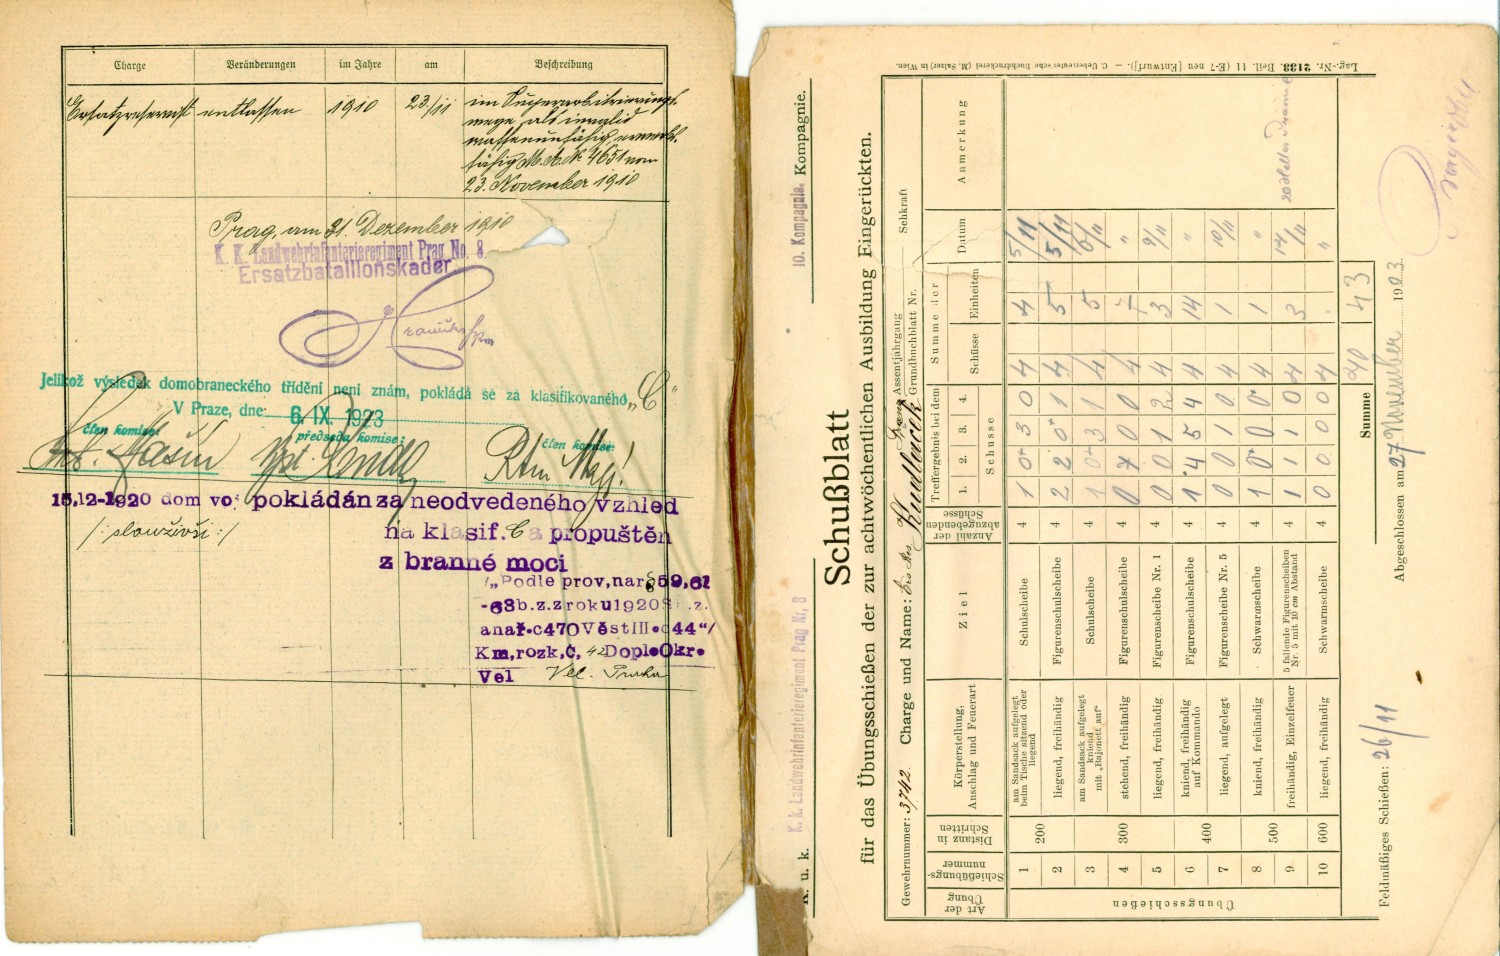 Charge Veränderungen im Jahre am Beschreibung
Ersatzreservist entlassen 1910 23/11 im Superarbitrierungs-
wege als invalid
waffenunfähig, erwerbs-
fähig M.A.N 4651 vom
23. November 1910
Prag, am 31. Dezember 1910
K. K. Landwehrinfanterieregiment Prag No. 8.
Ersatzbataillonskader
Jelikož výsledek domobraneckého třídění není znám, pokládá se za klasifikovaného „C“
V Praze, dne: 6. IX. 1923
člen komise: předseda komise: člen komise:
15.12-1920 dom vo: pokládán za neodvedeného vzhled
/: sloužívší :/ na klasif. C a propuštěn
z branné moci
/„Podle prov, nař § 59, 61
-68 b. z. z roku 1920 z.
a nař. c 470 Věst III. c 44“/
Km, rozk, C, 42 Dopl. Okr.
Vel Vel. Praha
Lag.-Nr. 2133. Beil. 11 (E-7 neu [Entwurf]). — C. Ueberreuter'sche Buchdruckerei (M. Salzer) in Wien.
K. u. k. K. k. Landwehrinfanterieregiment Prag Nr. 8 10. Kompagnie. Kompagnie.
Schußblatt
für das Übungsschießen der zur achtwöchentlichen Ausbildung Eingerückten.
Assentjahrgang Sehkraft
Gewehrnummer: 3742. Charge und Name: Franz Kudláček Grundbuchblatt Nr.
Art der Übung Schießübungsnummer Distanz in Schritten Körperstellung, Anschlag und Feuerart Ziel Anzahl der abzugebenden Schüsse Treffergebnis bei dem 1. 2. 3. 4. Schusse Summe der Schüsse Einheiten Datum Anmerkung
Übungsschießen
1 200 am Sandsack aufgelegt beim Tische sitzend oder liegend Schulscheibe 4 1 0 3 0 4 4 5/11
2 liegend, freihändig Figurenschulscheibe 4 2 2 0 1 4 5 5/11
3 300 am Sandsack aufgelegt kniend mit „Bajonett auf“ Schulscheibe 4 1 0 3 1 4 5 6/11
4 stehend, freihändig Figurenschulscheibe 4 0 7 0 0 4 7 „
5 liegend, freihändig Figurenscheibe Nr. 1 4 0 0 1 2 4 3 9/11
6 400 kniend, freihändig auf Kommando Figurenschulscheibe 4 1 4 5 4 4 14 „
7 liegend, aufgelegt Figurenscheibe Nr. 5 4 0 0 1 0 4 1 10/11
8 500 kniend, freihändig Schwarmscheibe 4 1 0 0 0 4 1 „
9 freihändig, Einzelfeuer 5 fallende Figurenscheiben Nr. 5 mit 10 cm Abstand 4 1 1 1 0 4 3 14/11 20 Heller Prämie
10 600 liegend, freihändig Schwarmscheibe 4 0 0 0 0 4 . „
Summe 40 43
Feldmäßiges Schießen: 26/11 Abgeschlossen am 27 November 1903.